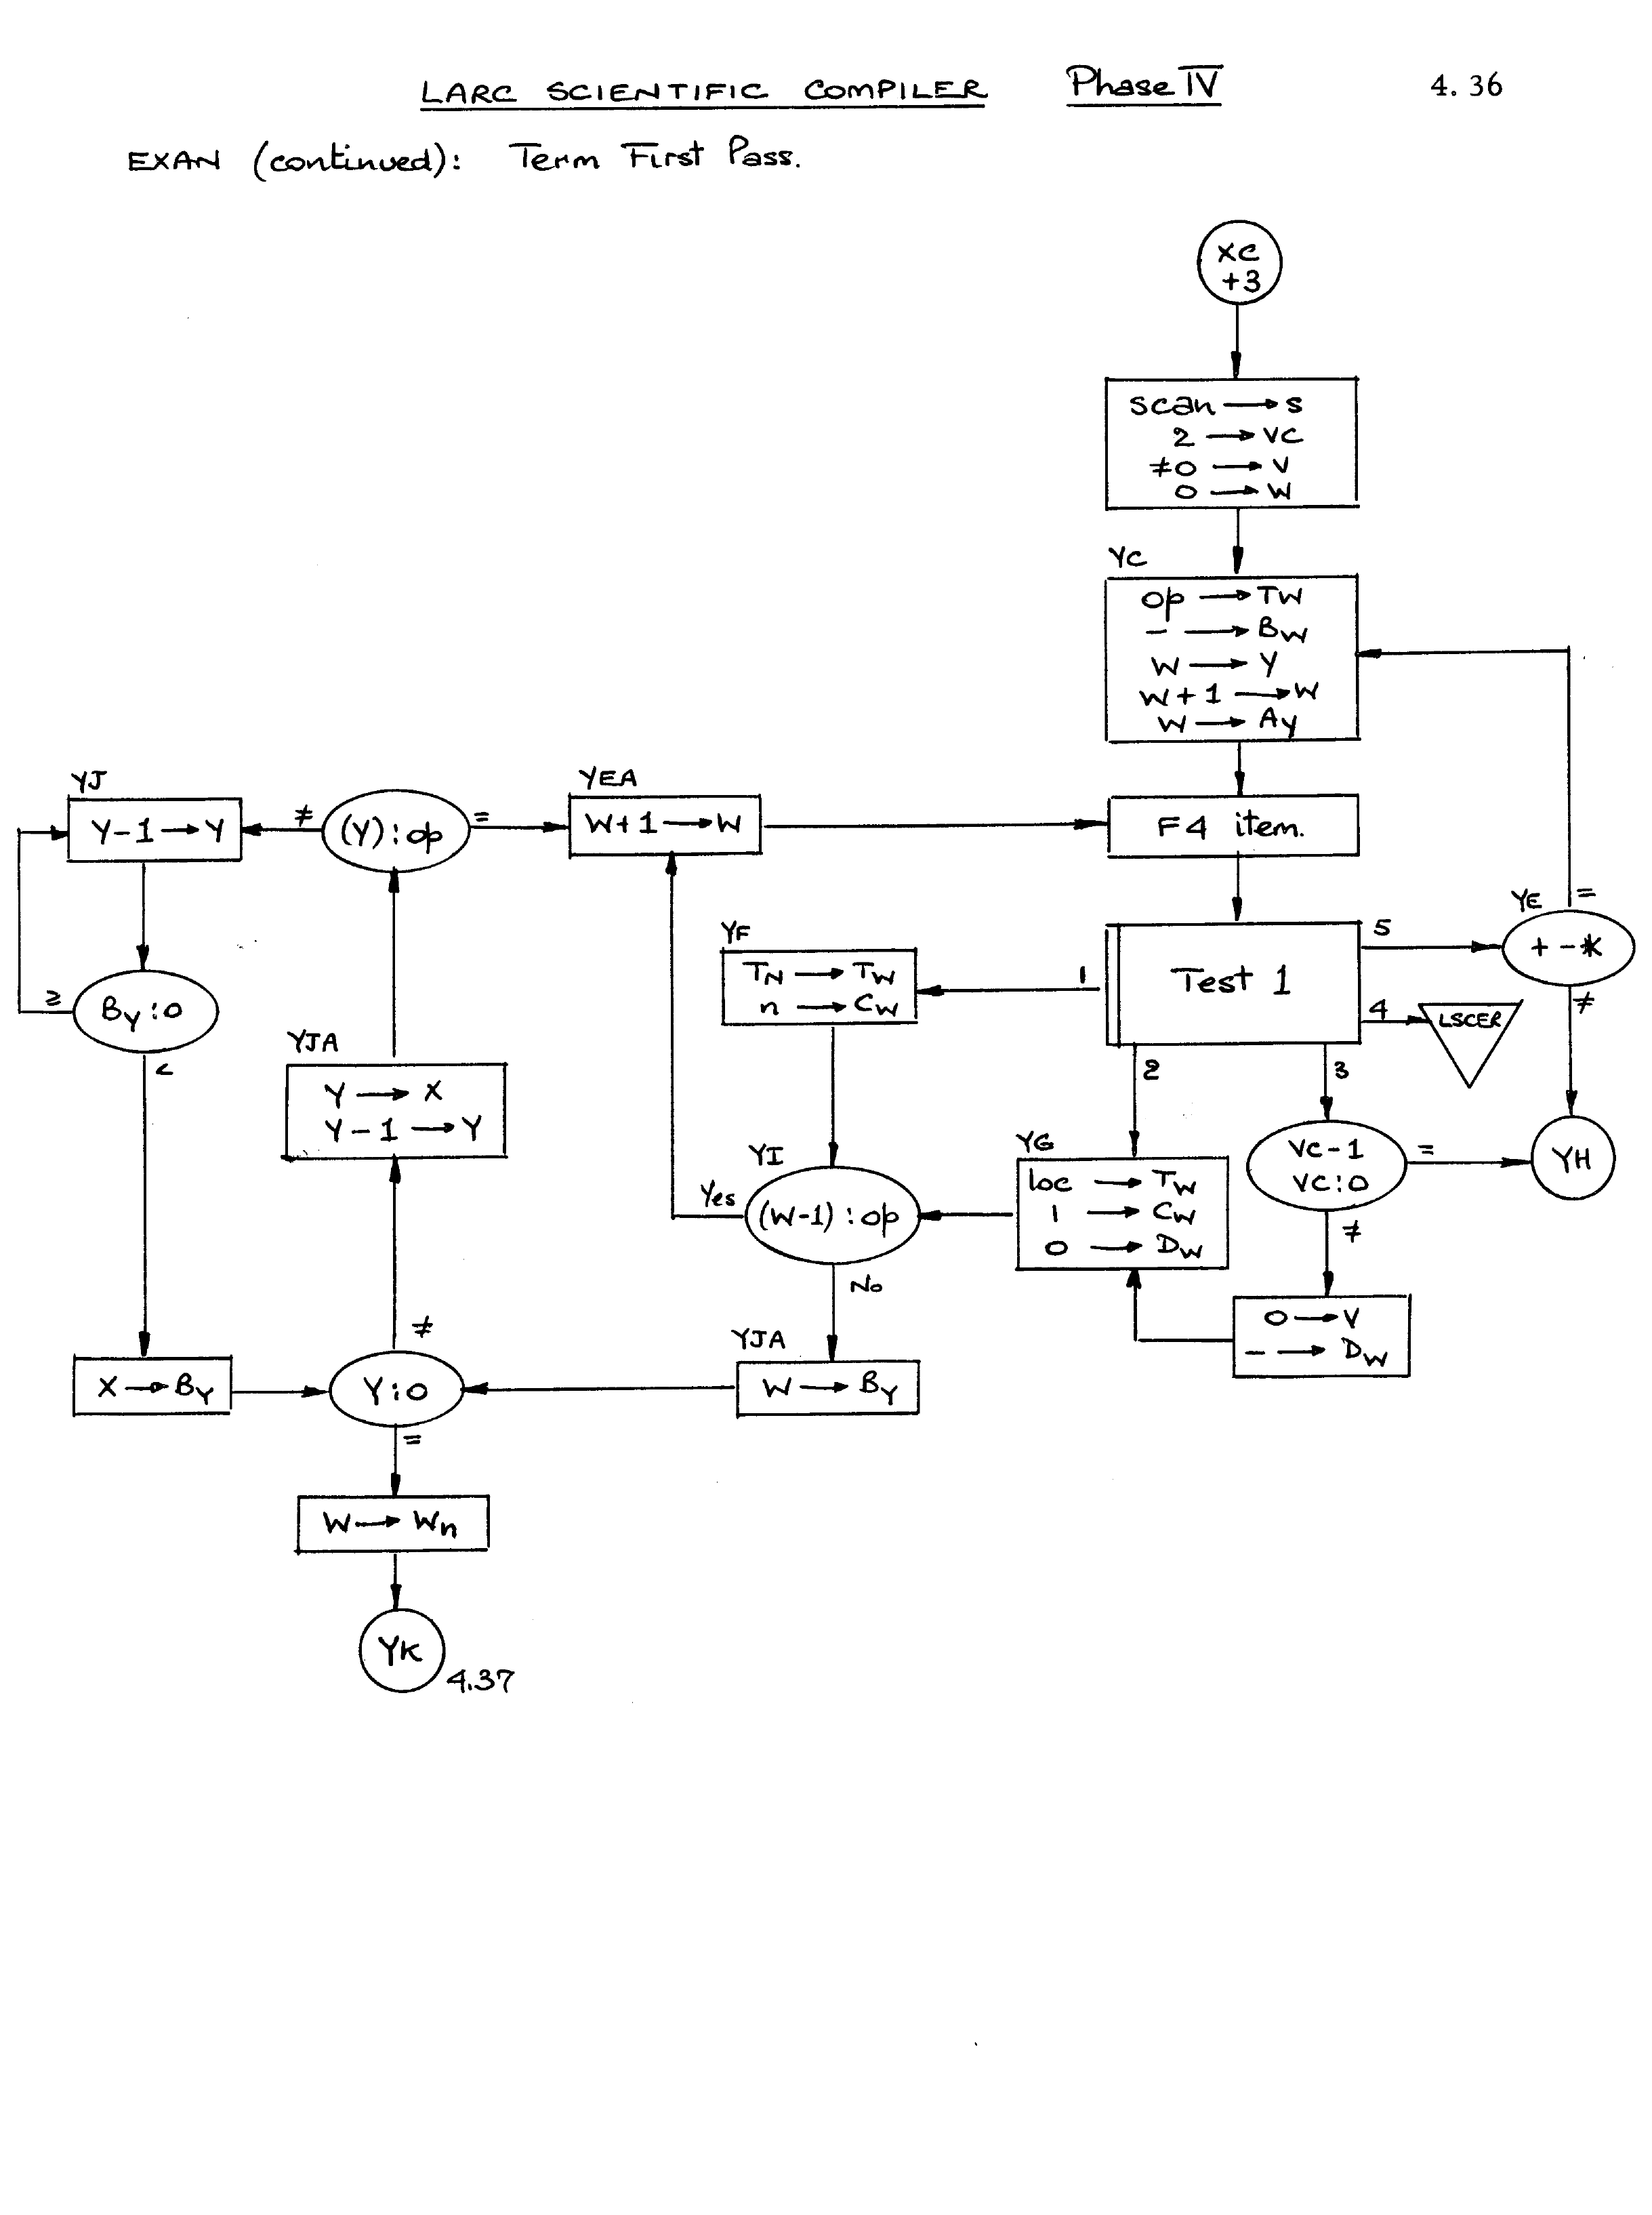 LARC SCIENTIFIC COMPILER Phase IV 4.36
EXAN (continued): Term First Pass.
XC
+3
scan → s
2 → VC
≠0 → V
0 → W
YC
op → TW
- → BW
W → Y
W+1 → W
W → Ay
YJ
Y-1 → Y
≠
(Y):op
=
YEA
W+1 → W
F4 item.
YE
=
+ - *
≠
YF
TN → TW
n → CW
1
Test 1
5
4
LSCER
2
3
≥
BY:0
<
YJA
Y → X
Y-1 → Y
YI
Yes
(W-1):op
No
YG
loc → TW
1 → CW
0 → DW
VC-1
VC:0
=
YH
≠
0 → V
- → DW
X → BY
≠
Y:0
=
YJA
W → BY
W → Wn
YK
4.37